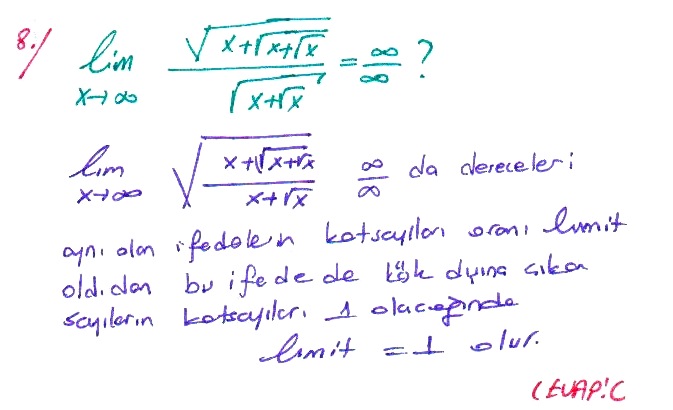 8./ lim x→∞ √(x+√(x+√x)) / √(x+√x) = ∞/∞ ?
lim x→∞ √((x+√(x+√x)) / (x+√x)) ∞/∞ da dereceleri
aynı olan ifadelein katsayıları oranı limit
old.dan bu ifede de kök dışına çıkan
sayıların katsayıları 1 olacağında
limit = 1 olur.
CEVAP: C